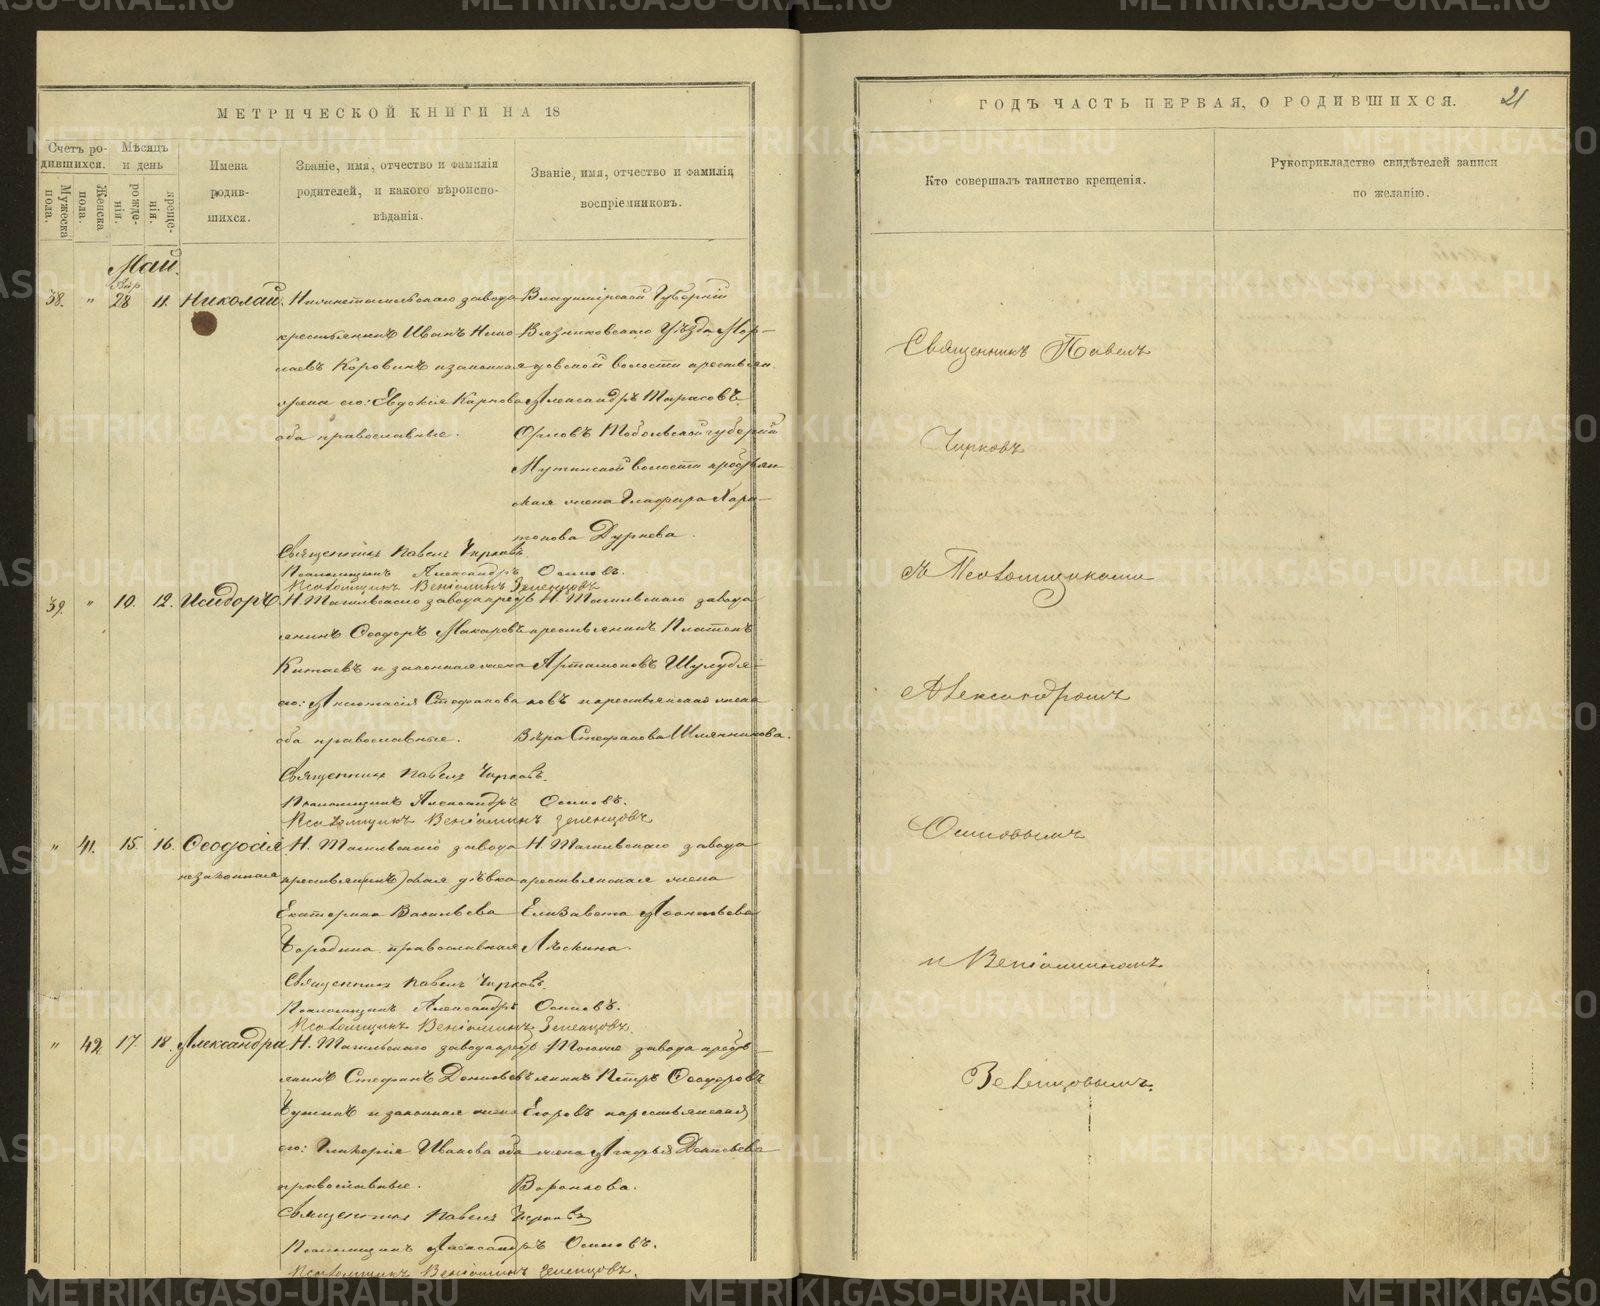 МЕТРИЧЕСКОЙ КНИГИ НА 18
Счетъ ро-
дившихся.
Мужеска
пола.
Женска
пола.
Мѣсяцъ
и день
рожде-
нія.
креще-
нія.
Имена
родив-
шихся.
Званіе, имя, отчество и фамилія
родителей, и какого вѣроиспо-
вѣданія.
Званіе, имя, отчество и фамилія
воспріемниковъ.
Май.
Апр.
38. " 28 11. Николай
Нижнетагильскаго завода
крестьянинъ Иванъ Нико
лаевъ Коровинъ и законная
жена его: Евдокія Карпова
оба православные.
Владимірской Губерніи
Вязниковскаго Уѣзда Мор-
довской волости крестьян.
Александръ Тарасовъ
Орловъ Тобольской губерніи
волости крестьян
ская жена Глафира Хари-
тонова Дурнева.
Священникъ Павелъ Чирковъ.
Псаломщикъ Александръ Осиповъ.
Псаломщикъ Веніаминъ Зеленцовъ
39. " 10. 12. Исидоръ
Н. Тагильскаго завода крест
янинъ Ѳеодоръ Макаровъ
Китаевъ и законная жена
его: Анастасія Стефанова
оба православные.
Н. Тагильскаго завода
крестьянинъ Платонъ
Артамоновъ
ковъ и крестьянская жена
Вѣра Стефанова Шляпникова.
Священникъ Павелъ Чирковъ.
Псаломщикъ Александръ Осиповъ.
Псаломщикъ Веніаминъ Зеленцовъ
" 41. 15. 16. Ѳеодосія
незаконная
Н. Тагильскаго завода
крестьян(инъ)ская дѣвка
Екатерина Васильева
православная
Н. Тагильскаго завода
крестьянская жена
Елизавета Леонтьева
Лѣскина.
Священникъ Павелъ Чирковъ.
Псаломщикъ Александръ Осиповъ.
Псаломщикъ Веніаминъ Зеленцовъ.
" 42. 17. 18. Александра
Н. Тагильскаго завода крест
янинъ Стефанъ Денисовъ
и законная жена
его: Гликерія Иванова оба
православные.
завода крест-
янинъ Петръ Ѳеодоровъ
Егоровъ и крестьянская
жена Агафья Дементьева
Воронкова.
Священникъ Павелъ Чирковъ
Псаломщикъ Александръ Осиповъ.
Псаломщикъ Веніаминъ Зеленцовъ.
ГОДЪ ЧАСТЬ ПЕРВАЯ, О РОДИВШИХСЯ.
21
Кто совершалъ таинство крещенія.
Рукоприкладство свидѣтелей записи
по желанію.
Священникъ Павелъ
Чирковъ
съ Псаломщиками
Александромъ
Осиповымъ
и Веніаминомъ
Зеленцовымъ.
METRIKI.GASO-URAL.RU